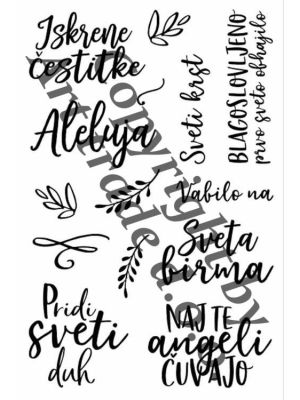 Iskrene
čestitke
Aleluja
Sveti krst
BLAGOSLOVLJENO
prvo sveto obhajilo
Vabilo na
Sveta
birma
Pridi
sveti
duh
NAJ TE
angeli
ČUVAJO
Copyright by